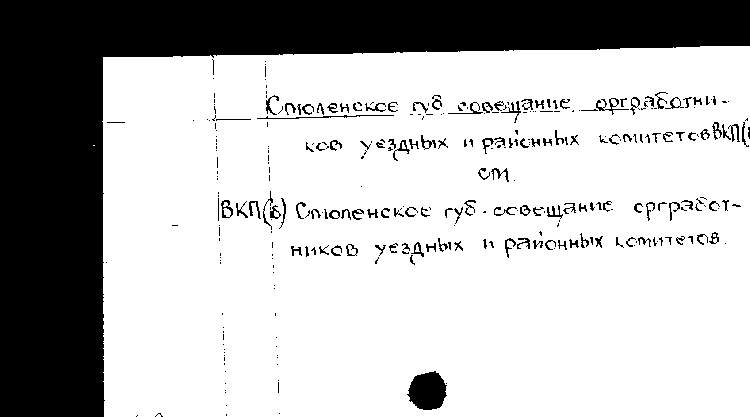 Смоленское губ совещание оргработни-
ков уездных и районных комитетов ВКП(б
см.
ВКП(б) Смоленское губ. совещание оргработ-
ников уездных и районных комитетов.